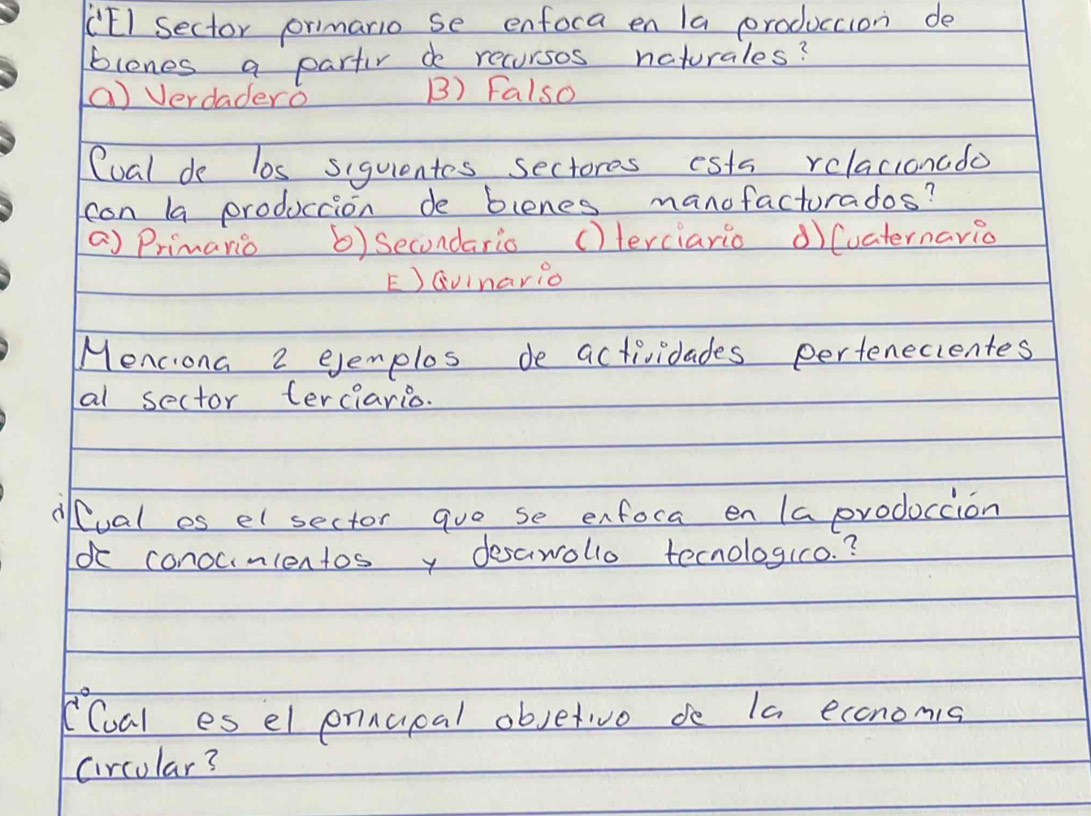 ¿El sector primario se enfoca en la produccion de
bienes a partir de recursos naturales?
a) Verdadero B) Falso
Cual de los siguientes sectores esta relacionado
con la producción de bienes manofacturados?
a) Primario b) Secundario c) terciario d) Cuaternario
E) Quinario
Menciona 2 ejemplos de actividades pertenecientes
al sector terciario.
¿Cual es el sector que se enfoca en la producción
de conocimientos y desarrollo tecnologico.?
¿Cual es el principal objetivo de la economia
circular?